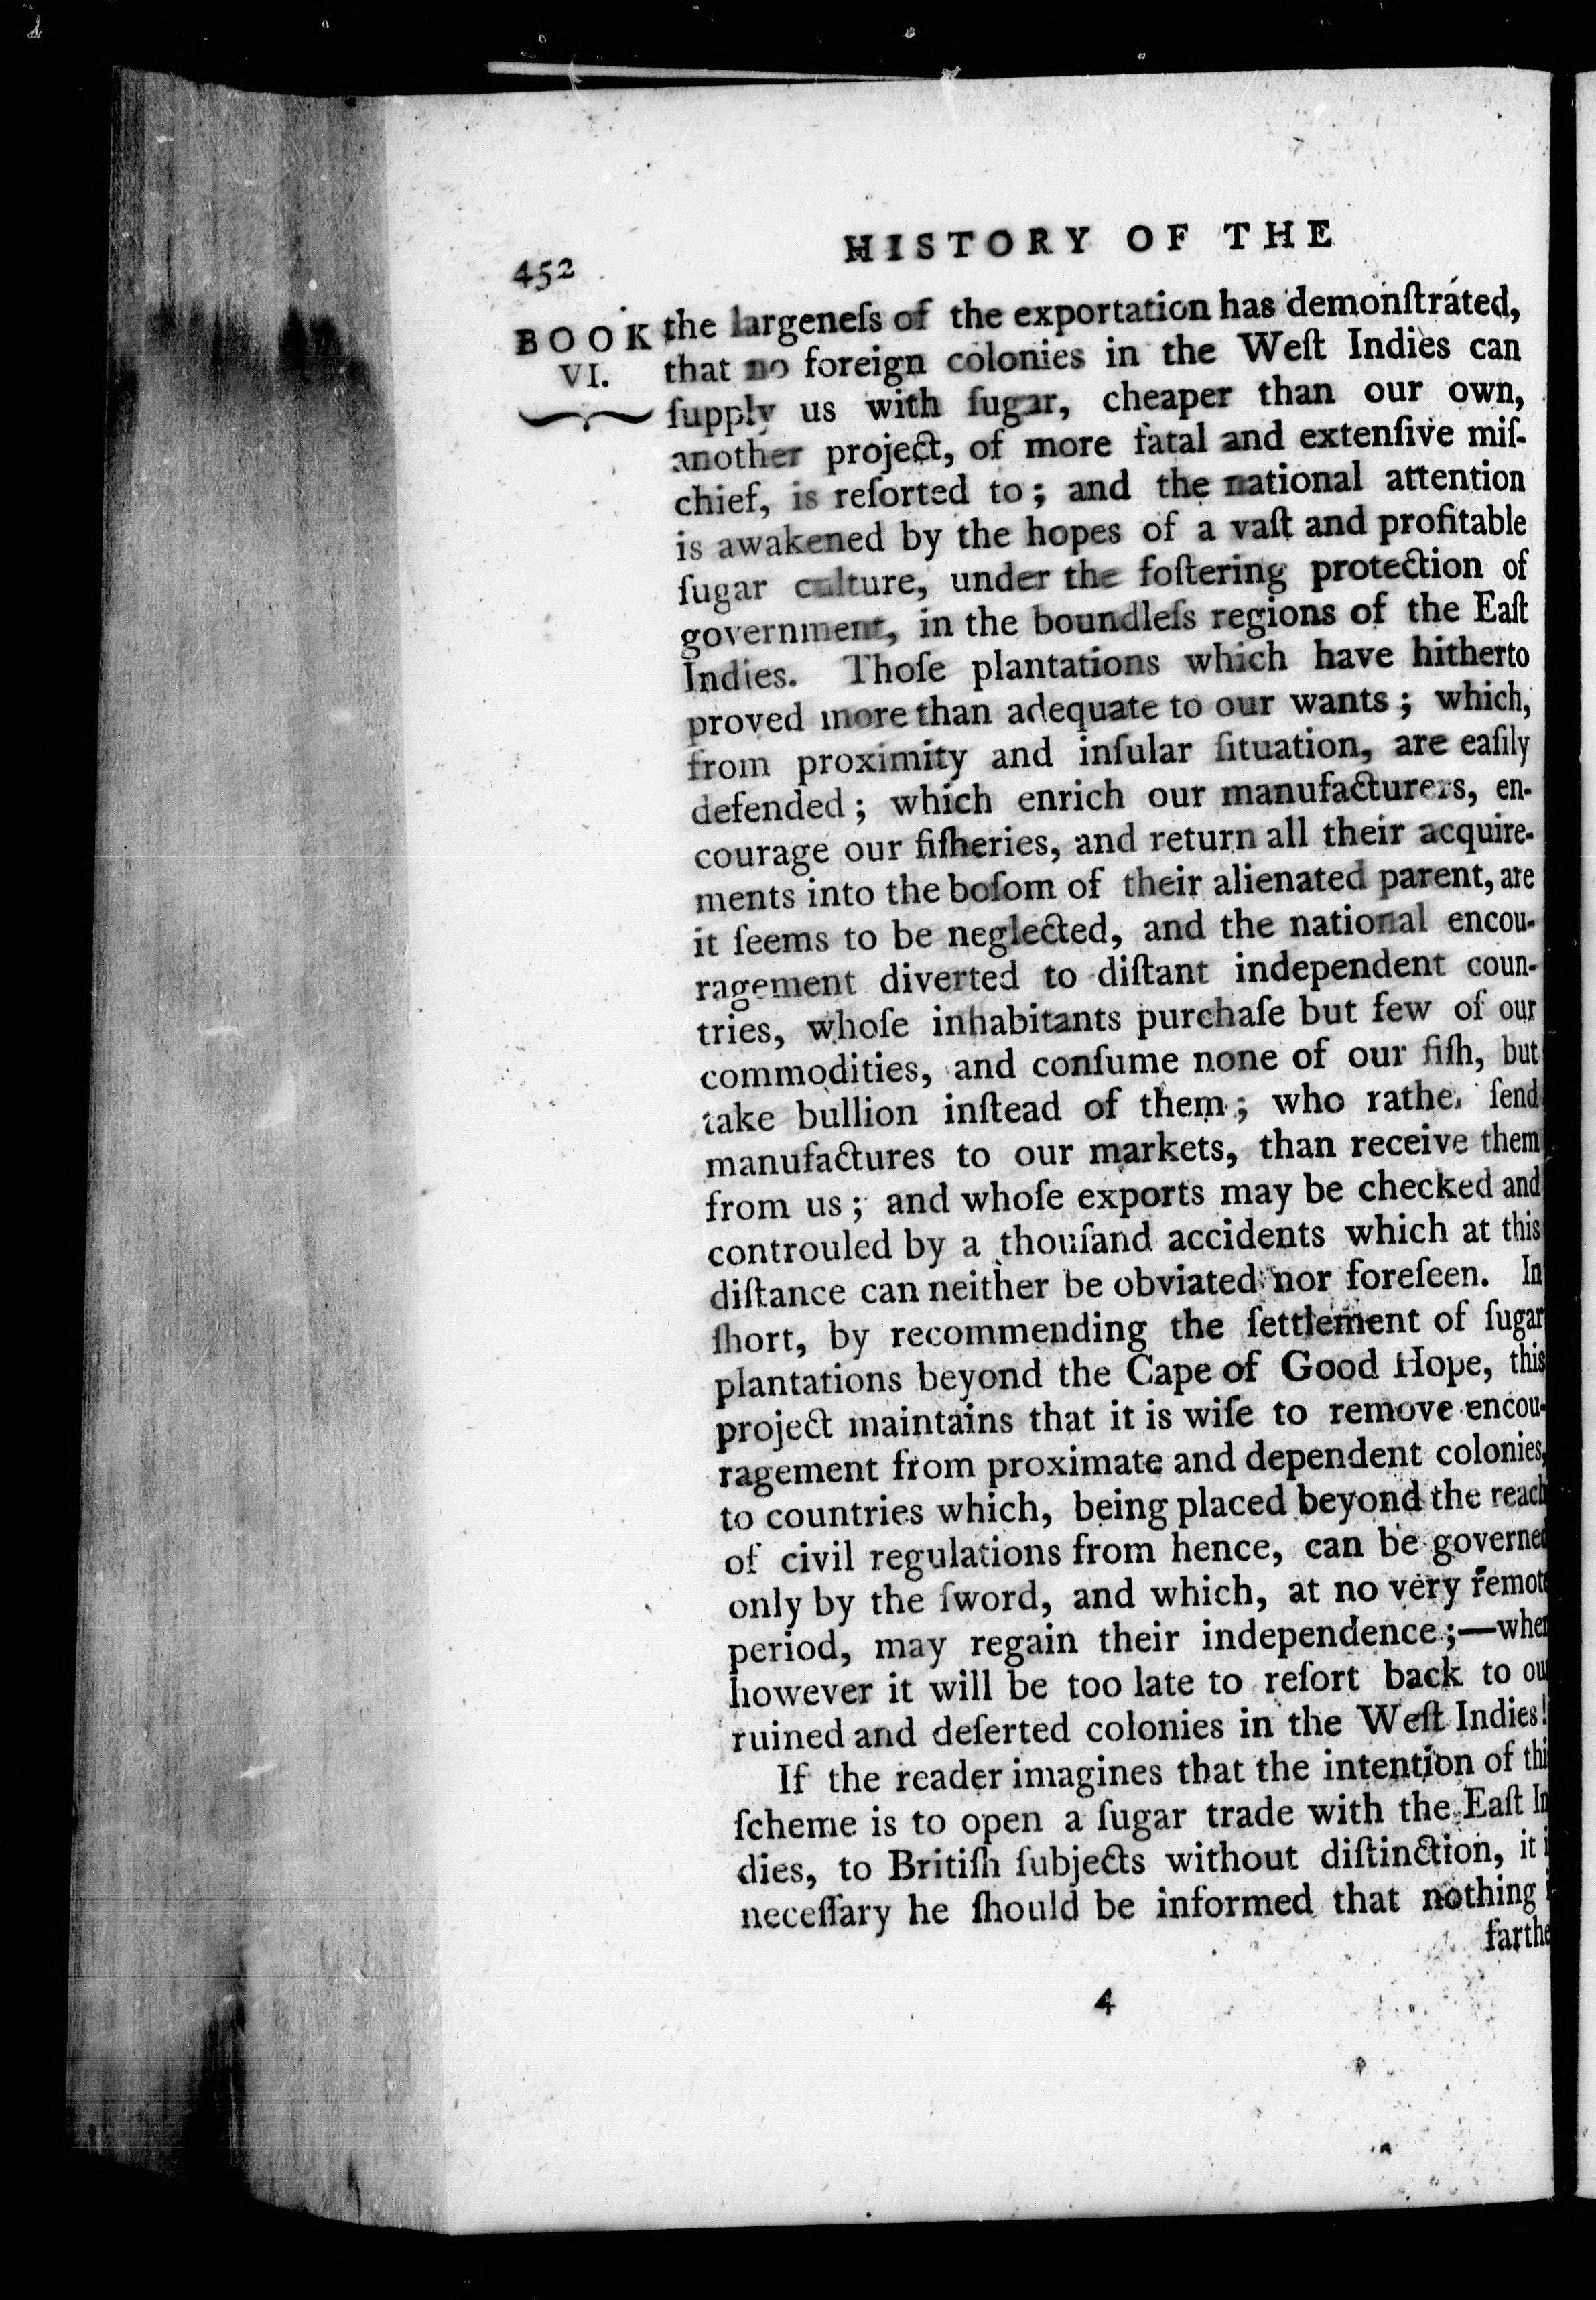 452
HISTORY OF THE
BOOK
VI.
the largeneſs of the exportation has demonſtrated,
that no foreign colonies in the Weſt Indies can
ſupply us with ſugar, cheaper than our own,
another project, of more fatal and extenſive miſ-
chief, is reſorted to; and the national attention
is awakened by the hopes of a vaſt and profitable
ſugar culture, under the foſtering protection of
government, in the boundleſs regions of the Eaſt
Indies. Thoſe plantations which have hitherto
proved more than adequate to our wants; which,
from proximity and inſular ſituation, are eaſily
defended; which enrich our manufacturers, en-
courage our fiſheries, and return all their acquire-
ments into the boſom of their alienated parent, are
it ſeems to be neglected, and the national encou-
ragement diverted to diſtant independent coun-
tries, whoſe inhabitants purchaſe but few of our
commodities, and conſume none of our fiſh, but
take bullion inſtead of them; who rather ſend
manufactures to our markets, than receive them
from us; and whoſe exports may be checked and
controuled by a thouſand accidents which at this
diſtance can neither be obviated nor foreſeen. In
ſhort, by recommending the ſettlement of ſugar
plantations beyond the Cape of Good Hope, this
project maintains that it is wiſe to remove encou-
ragement from proximate and dependent colonies,
to countries which, being placed beyond the reach
of civil regulations from hence, can be governed
only by the ſword, and which, at no very remote
period, may regain their independence;—when
however it will be too late to reſort back to ou
ruined and deſerted colonies in the Weſt Indies!
If the reader imagines that the intention of thi
ſcheme is to open a ſugar trade with the Eaſt In
dies, to Britiſh ſubjects without diſtinction, it i
neceſſary he ſhould be informed that nothing i
farthe
4